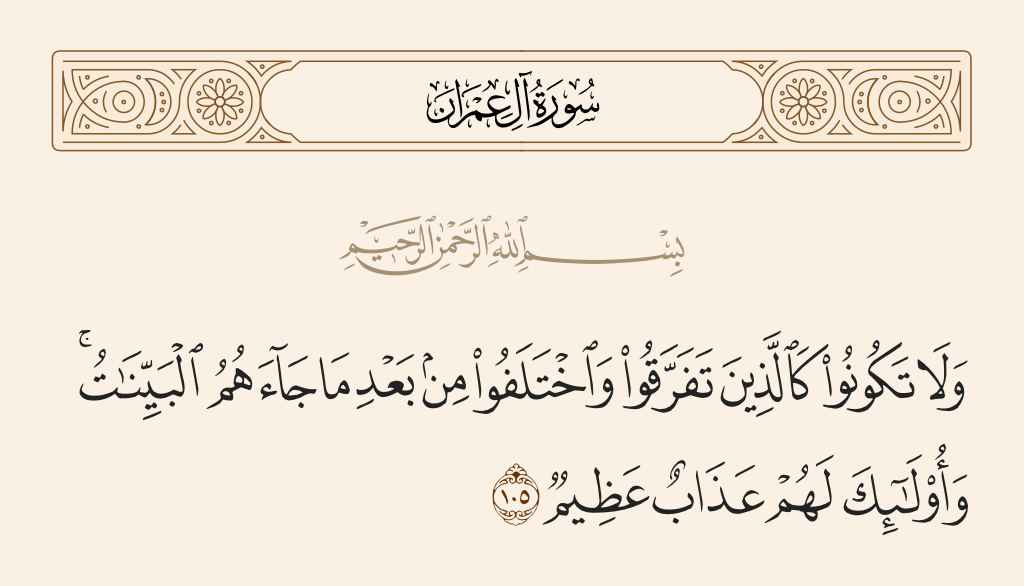 سُورَةُ آلِ عِمْرَانَ
بِسْمِ ٱللَّهِ ٱلرَّحْمَٰنِ ٱلرَّحِيمِ
وَلَا تَكُونُوا۟ كَٱلَّذِينَ تَفَرَّقُوا۟ وَٱخْتَلَفُوا۟ مِنۢ بَعْدِ مَا جَآءَهُمُ ٱلْبَيِّنَٰتُ ۚ
وَأُو۟لَٰٓئِكَ لَهُمْ عَذَابٌ عَظِيمٌ ١٠٥